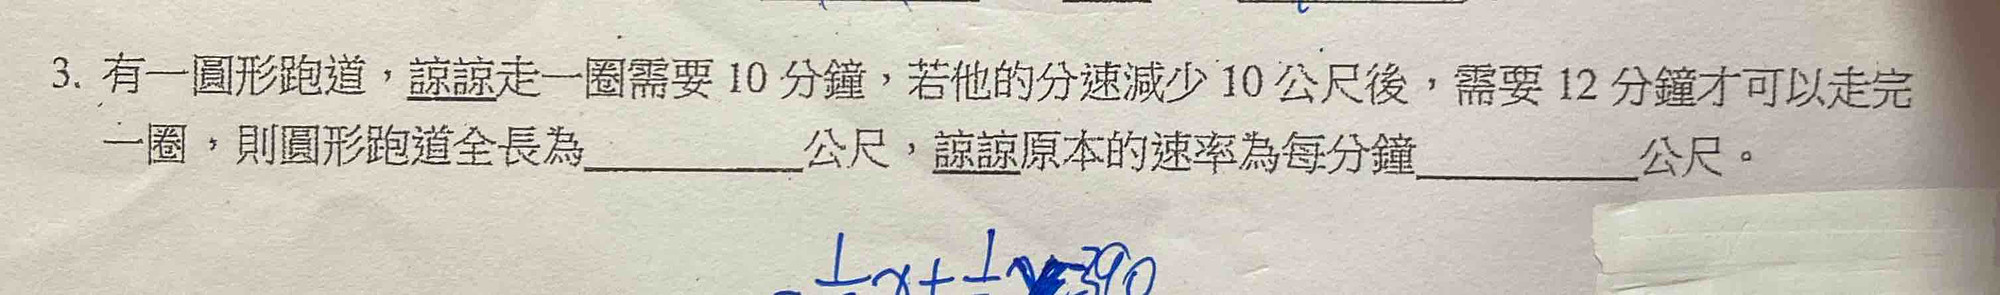 3. 有一圓形跑道，諒諒走一圈需要 10 分鐘，若他的分速減少 10 公尺後，需要 12 分鐘才可以走完
一圈，則圓形跑道全長為________公尺，諒諒原本的速率為每分鐘________公尺。